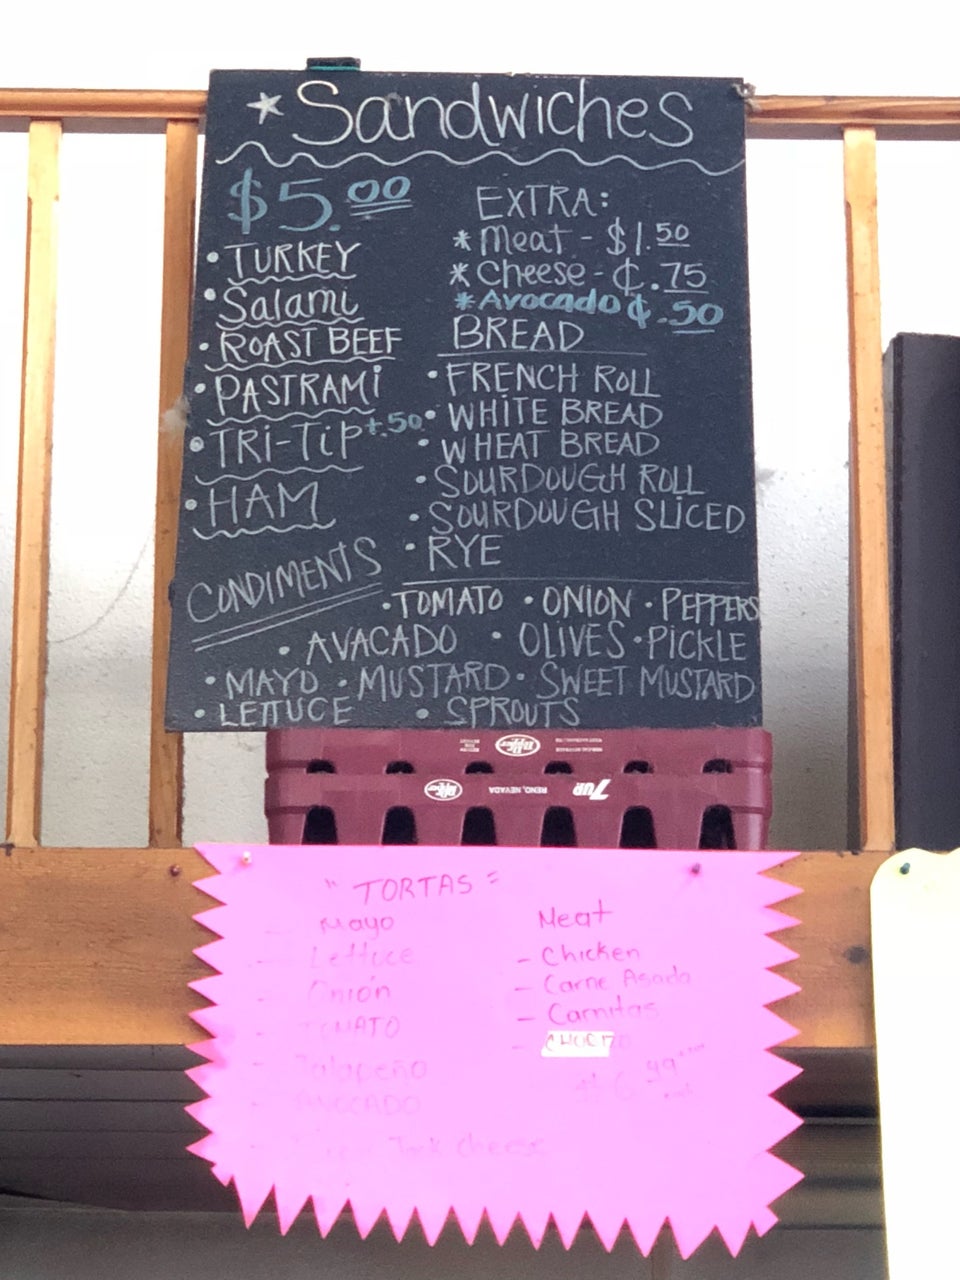 * Sandwiches
$5.00
• TURKEY
• Salami
• ROAST BEEF
• PASTRAMi
• TRi-TiP +.50
• HAM
EXTRA:
* Meat - $1.50
* Cheese - ¢.75
* Avocado ¢.50
BREAD
• FRENCH ROLL
• WHITE BREAD
• WHEAT BREAD
• SOURDOUGH ROLL
• SOURDOUGH SLICED
• RYE
CONDIMENTS
• TOMATO • ONION • PEPPERS
• AVACADO • OLIVES • PICKLE
• MAYO • MUSTARD • SWEET MUSTARD
• LETTUCE • SPROUTS
Dr Pepper
Dr Pepper RENO, NEVADA 7UP
"TORTAS"
Mayo
Lettuce
Onión
TOMATO
Jalapeño
AVOCADO
Jack Cheese
Meat
- Chicken
- Carne Asada
- Carnitas
- CHORIZO
$6.99